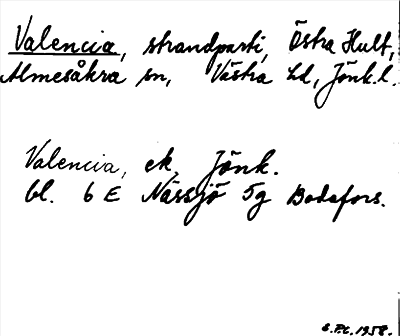 Valencia, strandparti, Östra Hult,
Almesåkra sn, Västra hd, Jönk. l.
Valencia, ek, Jönk.
bl. 6 E Nässjö 5g Bodafors.
1958.